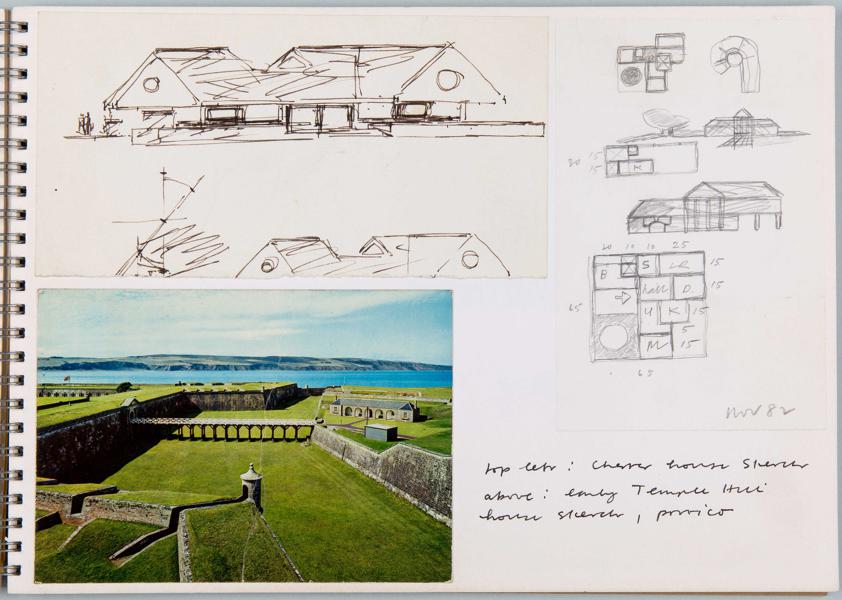 20 15
15 K
20 10 10 25
B S LR 15
hall D. 15
65 U K 15
5
M 15
65
Nov 82
top left : Chester house sketch
above : early Temple Hill
house sketch, portico